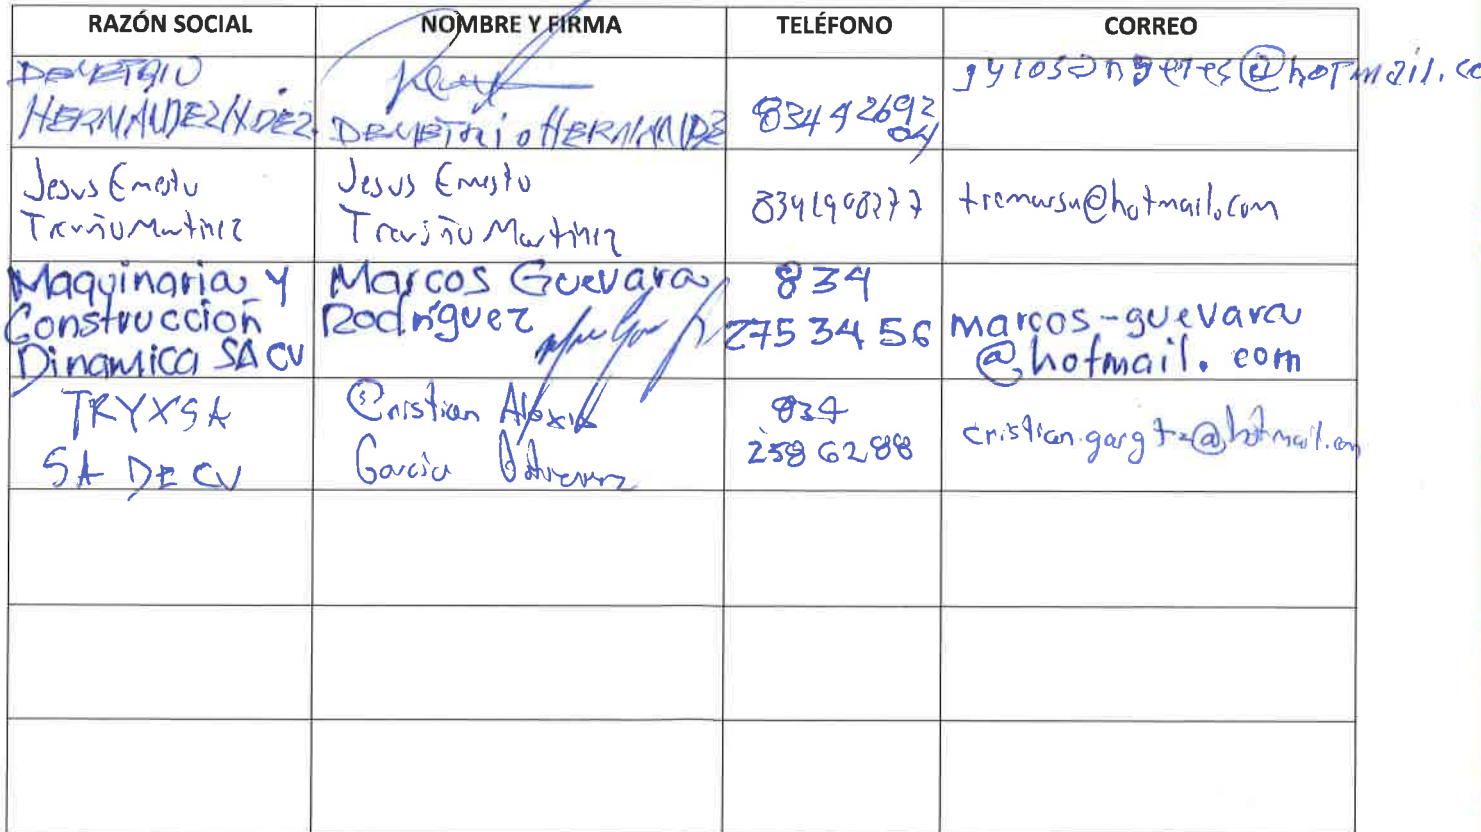 RAZÓN SOCIAL NOMBRE Y FIRMA TELÉFONO CORREO
DEMETRIO
HERNANDEZ HDEZ.
DEMETRIO HERNANDEZ
834 4 2692
04
@hotmail.co
Jesus Ernesto
Treviño Martinez
Jesus Ernesto
Treviño Martinez
8341908277
tremarsu@hotmail.com
Maquinaria y
Construccion
Dinamica SA CV
Marcos Guevara
Rodríguez
834
275 34 56
marcos-guevara
@hotmail.com
TRYXSA
SA DE CV
Cristian Alexis
Garcia
834
258 62 88
cristian.gargtz@hotmail.com